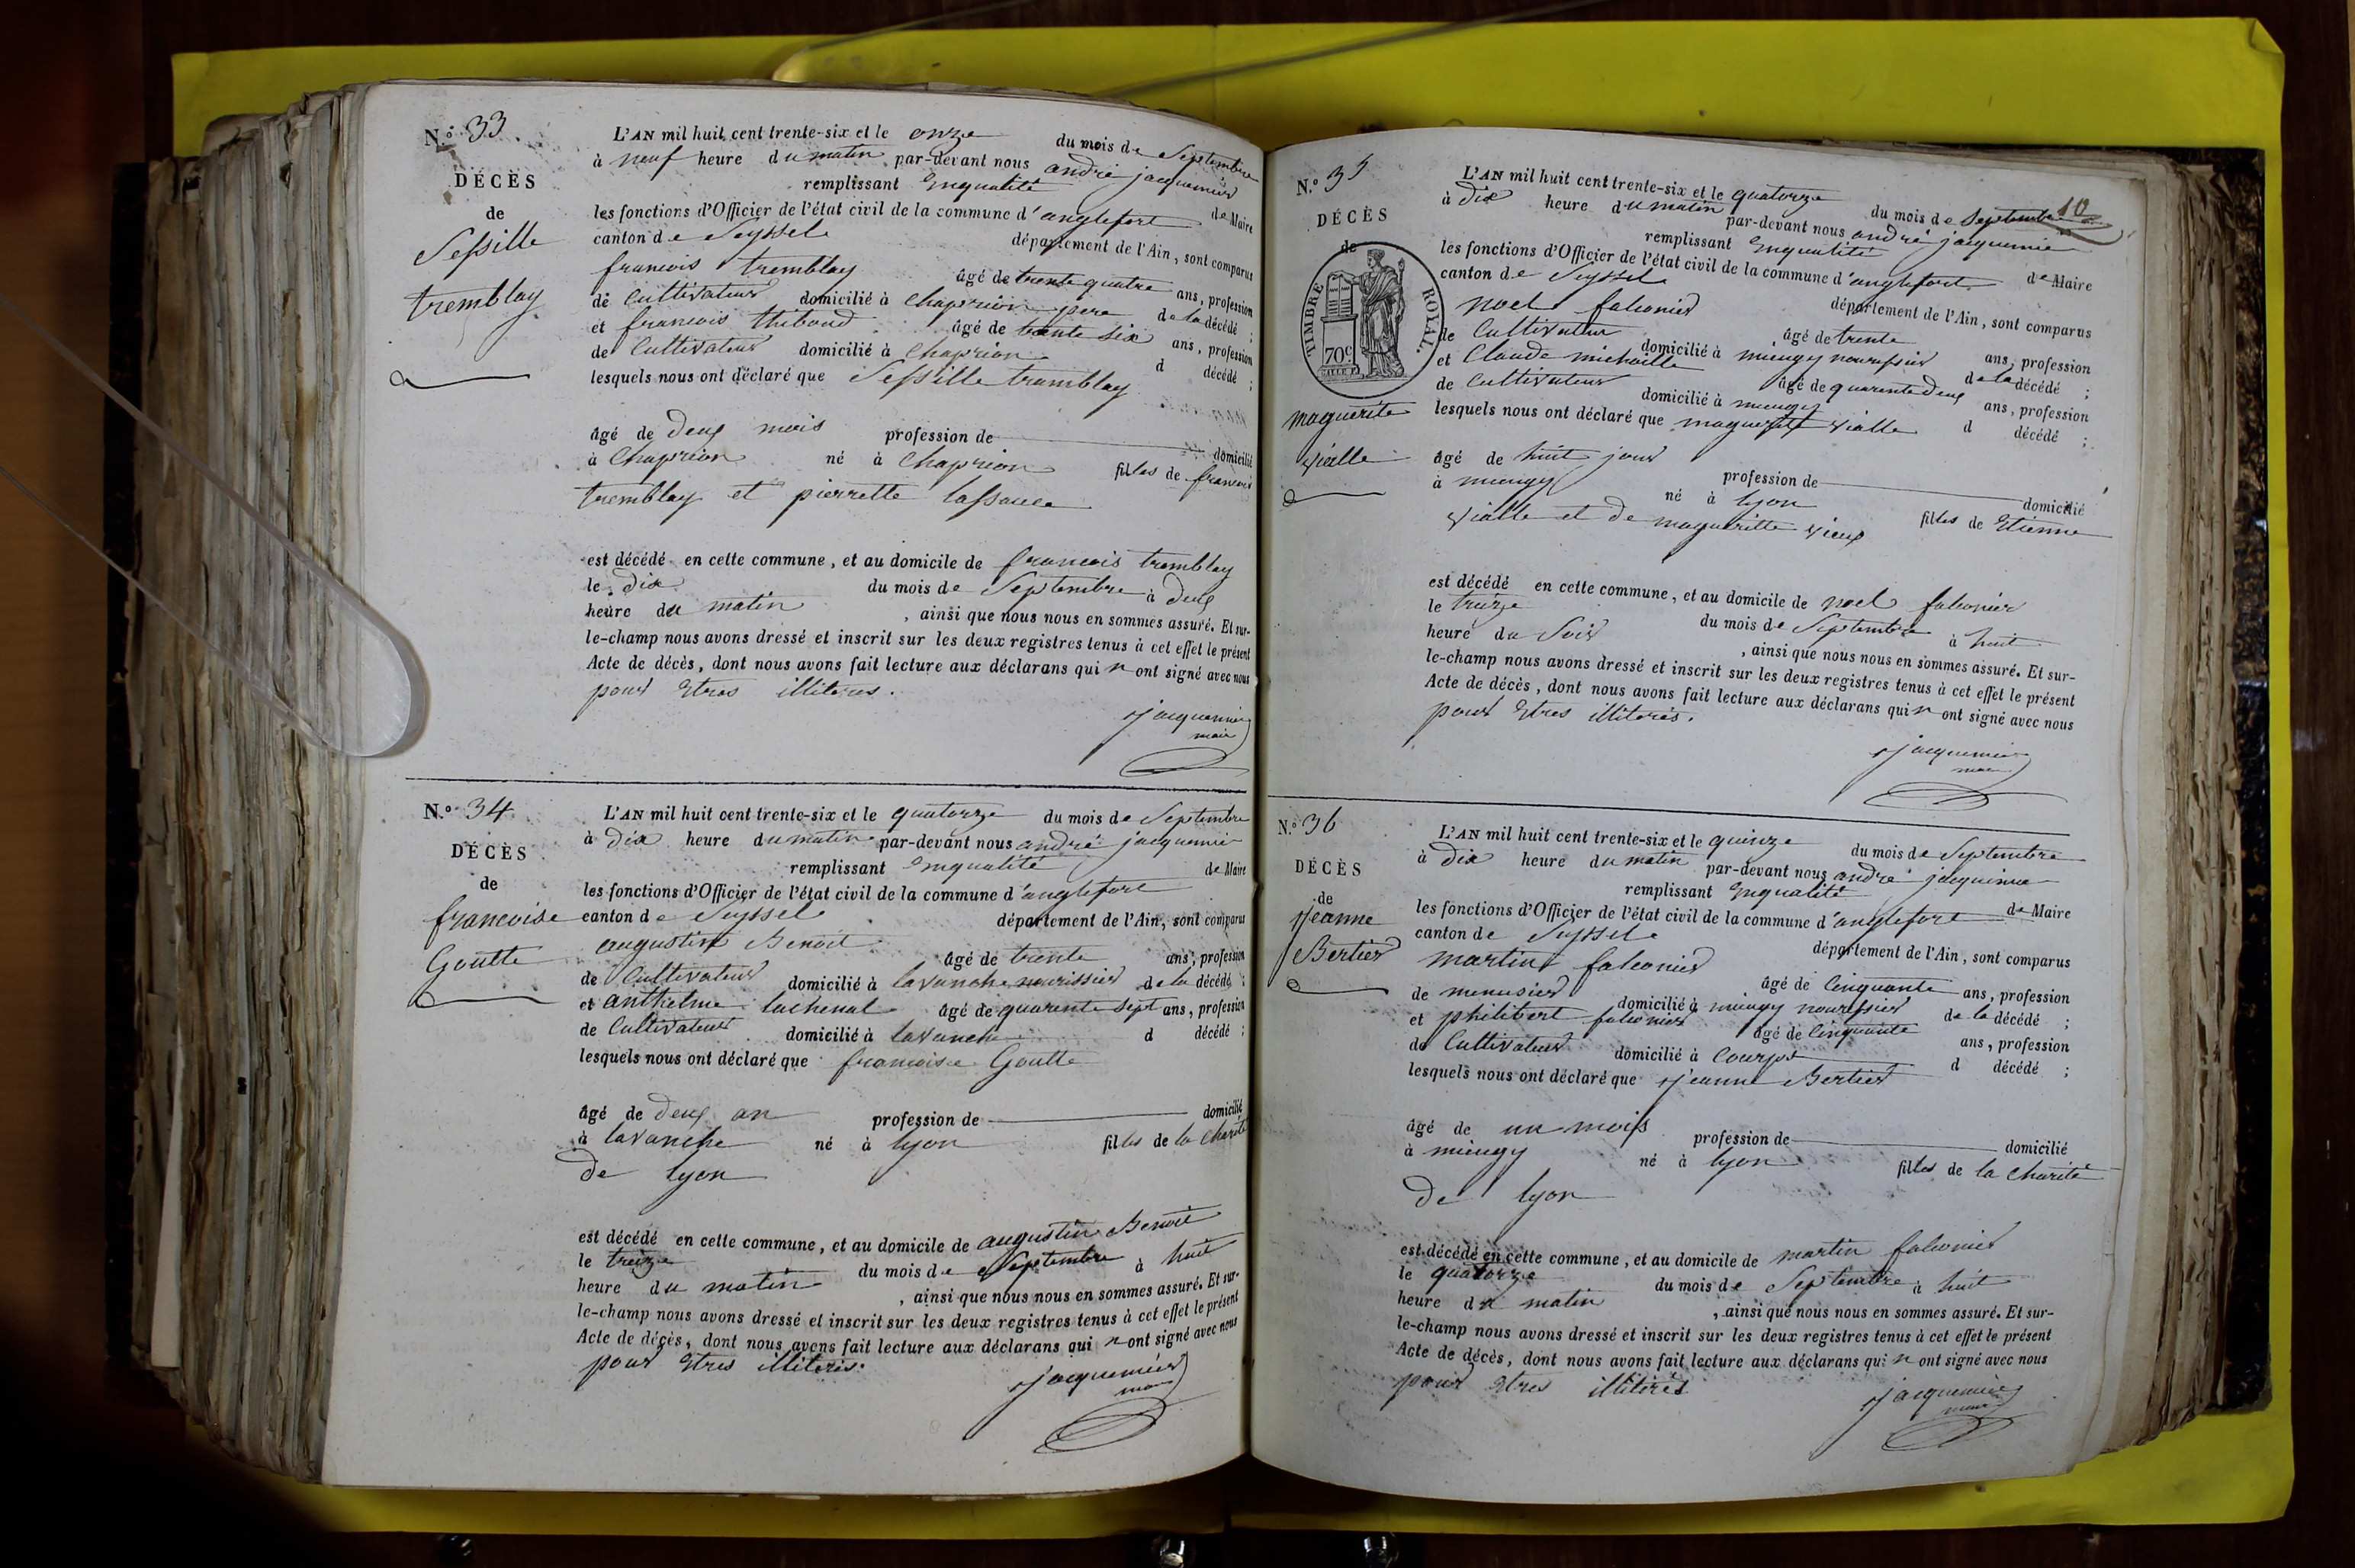 N.° 33
DÉCÈS
de
Sessille
tremblay
L'AN mil huit cent trente-six et le onze du mois de Septembre
à neuf heure du matin par-devant nous andré jacquemier
remplissant Enqualité de Maire
les fonctions d'Officier de l'état civil de la commune d'anglefort
canton de Seyssel département de l'Ain, sont comparus
francois tremblay âgé de trente quatre ans, profession
de Cultivateur domicilié à Chaprion pere de la décédé ;
et francois thiboud âgé de trente six ans, profession
de Cultivateur domicilié à Chaprion d décédé ;
lesquels nous ont déclaré que Sessille tramblay
âgé de deux mois profession de domicilié
à Chaprion né à Chaprion filles de francois
tremblay et pierrette lassauce
est décédé en cette commune, et au domicile de francois tremblay
le dix du mois de Septembre à deux
heure du matin, ainsi que nous nous en sommes assuré. Et sur-
le-champ nous avons dressé et inscrit sur les deux registres tenus à cet effet le présent
Acte de décès, dont nous avons fait lecture aux déclarans qui n ont signé avec nous
pour Etres illiteres.
jacquemier
maire
N.° 34
DÉCÈS
de
francoise
Goutte
L'AN mil huit cent trente-six et le quatorze du mois de Septembre
à dix heure du matin par-devant nous andré jacquemier
remplissant Enqualité de Maire
les fonctions d'Officier de l'état civil de la commune d'anglefort
canton de Seyssel département de l'Ain, sont comparus
augustin Benoit âgé de trente ans, profession
de Cultivateur domicilié à lavanche nourissier de la décédé ;
et anthelme lachenal âgé de quarente sept ans, profession
de Cultivateur domicilié à lavanche d décédé ;
lesquels nous ont déclaré que francoise Goutte
âgé de deux an profession de domicilié
à lavanche né à lyon filles de la Charité
de lyon
est décédé en cette commune, et au domicile de augustin Benoit
le treize du mois de Septembre à huit
heure du matin, ainsi que nous nous en sommes assuré. Et sur-
le-champ nous avons dressé et inscrit sur les deux registres tenus à cet effet le présent
Acte de décès, dont nous avons fait lecture aux déclarans qui n ont signé avec nous
pour Etres illiteris.
jacquemier
maire
10
N.° 35
DÉCÈS
de
TIMBRE ROYAL.
70c
maguerite
vialle
L'AN mil huit cent trente-six et le quatorze du mois de Septembre
à dix heure du matin par-devant nous andré jacquemier
remplissant Enqualité de Maire
les fonctions d'Officier de l'état civil de la commune d'anglefort
canton de Seyssel département de l'Ain, sont comparus
noel falconier âgé de trente ans, profession
de Cultivateur domicilié à miengy nourissier de la décédé ;
et Claude michaille âgé de quarente deux ans, profession
de Cultivateur domicilié à miengy d décédé ;
lesquels nous ont déclaré que maguerite vialle
âgé de huit jour profession de domicilié
à miengy né à lyon filles de Etienne
vialle et de magueritte vieux
est décédé en cette commune, et au domicile de noel falconier
le treize du mois de Septembre à huit
heure du Soir, ainsi que nous nous en sommes assuré. Et sur-
le-champ nous avons dressé et inscrit sur les deux registres tenus à cet effet le présent
Acte de décès, dont nous avons fait lecture aux déclarans qui n ont signé avec nous
pour Etres illiteris.
jacquemier
maire
N.° 36
DÉCÈS
de
Jeanne
Bertier
L'AN mil huit cent trente-six et le quinze du mois de Septembre
à dix heure du matin par-devant nous andré jacquemier
remplissant Enqualité de Maire
les fonctions d'Officier de l'état civil de la commune d'anglefort
canton de Seyssel département de l'Ain, sont comparus
martin falconier âgé de Cinquante ans, profession
de menusier domicilié à miengy nourissier de la décédé ;
et philibert falconier âgé de Cinquante ans, profession
de Cultivateur domicilié à d décédé ;
lesquels nous ont déclaré que Jeanne Bertier
âgé de un mois profession de domicilié
à miengy né à lyon filles de la Charité
de lyon
est décédé en cette commune, et au domicile de martin falconier
le quatorze du mois de Septembre à huit
heure du matin, ainsi que nous nous en sommes assuré. Et sur-
le-champ nous avons dressé et inscrit sur les deux registres tenus à cet effet le présent
Acte de décès, dont nous avons fait lecture aux déclarans qui n ont signé avec nous
pour Etres illiterés
jacquemier
maire